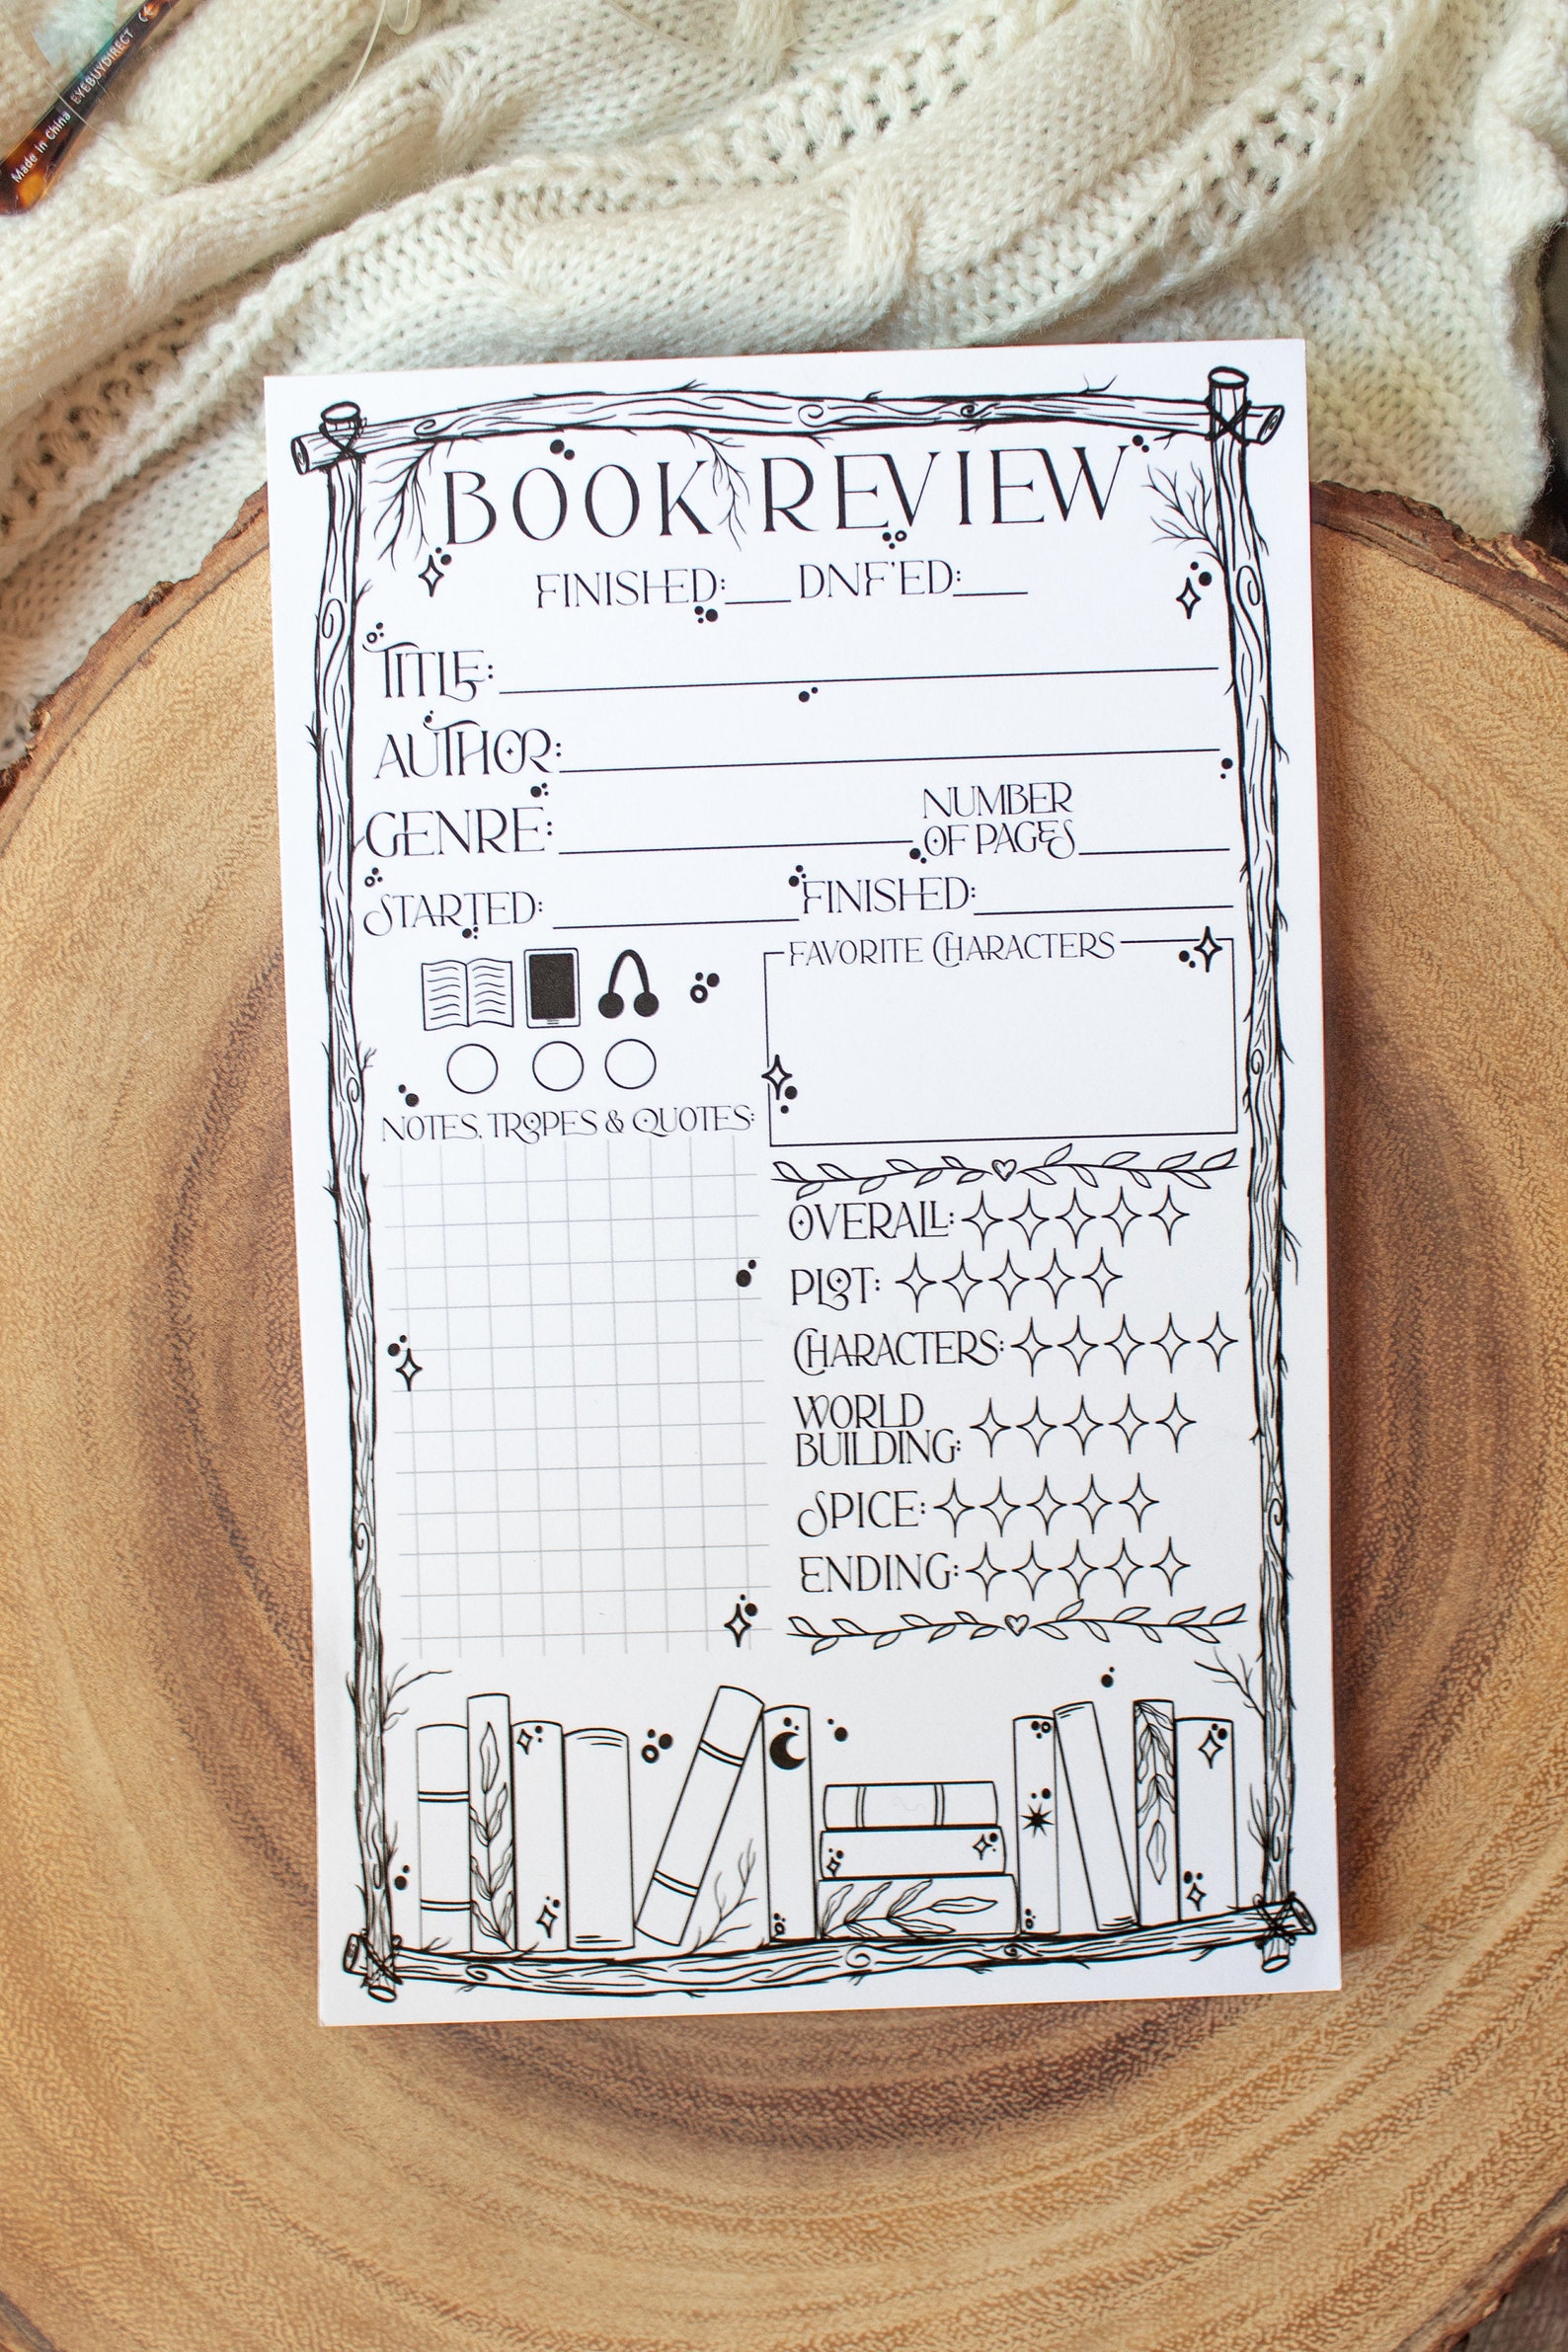 Made in China | EYEBUYDIRECT CE
BOOK REVIEW
FINISHED:___ DNF'ED:___
TITLE:
AUTHOR:
GENRE:
NUMBER
OF PAGES
STARTED:
FINISHED:
FAVORITE CHARACTERS
NOTES, TROPES & QUOTES:
OVERALL:
PLOT:
CHARACTERS:
WORLD
BUILDING:
SPICE:
ENDING: